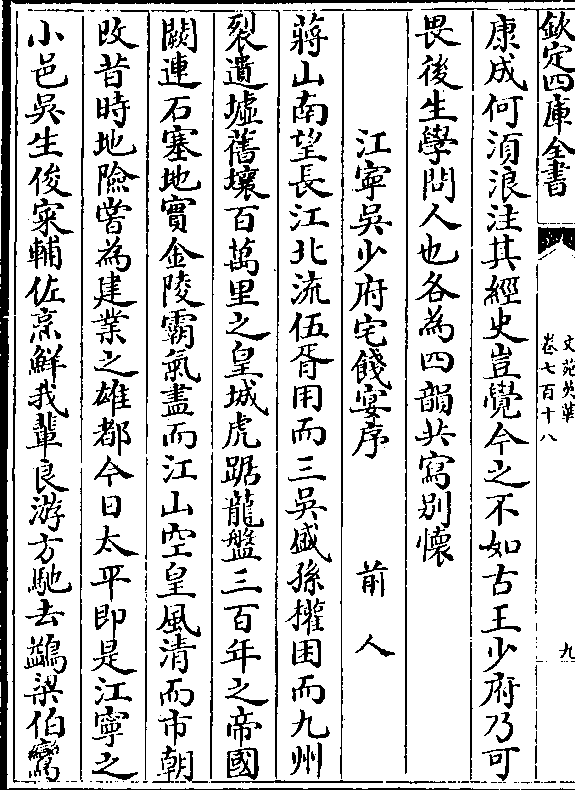 欽定四庫全書
文苑英華
卷七百十八
九
康成何須浪注其經史豈覺今之不如古王少府乃可
畏後生學問人也各為四韻共寫别懷
江寧吳少府宅餞宴序 前人
蔣山南望長江北流伍胥用而三吳盛孫權困而九州
裂遺墟舊壤百萬里之皇城虎踞龍盤三百年之帝國
闕連石塞地實金陵霸氣盡而江山空皇風清而市朝
改昔時地險嘗為建業之雄都今日太平即是江寧之
小邑吳生俊寀輔佐烹鮮我輩良游方馳去鷁梁伯鸞